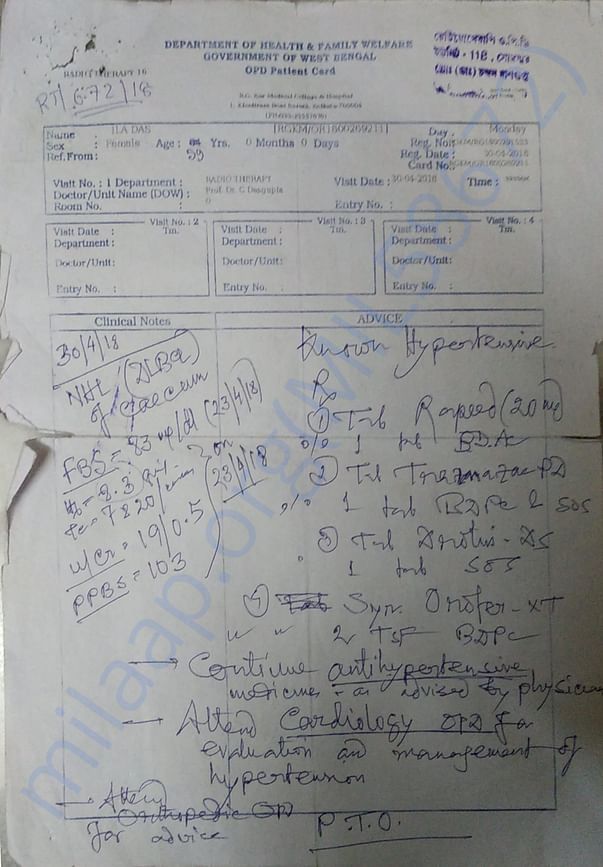 DEPARTMENT OF HEALTH & FAMILY WELFARE
GOVERNMENT OF WEST BENGAL
OPD Patient Card
RADIOTHERAPY 16
RT/672/18
R.G. Kar Medical College & Hospital
Name : ILA DAS
Sex : Female Age : 59 Yrs. 0 Months 0 Days
Ref.From :
Day : Monday
Reg. No:
Reg. Date : 30-04-2018
Card No:
Visit No. : 1 Department : RADIOTHERAPY
Doctor/Unit Name (DOW) : Prof. Dr. C Dasgupta
Room No. : 0
Visit Date : 30-04-2018 Time :
Entry No. :
Visit No. : 2
Visit Date : Tm.
Department :
Doctor/Unit:
Entry No. :
Visit No. : 3
Visit Date : Tm.
Department :
Doctor/Unit:
Entry No. :
Visit No. : 4
Visit Date : Tm.
Department :
Doctor/Unit:
Entry No. :
Clinical Notes
30/4/18
NHL (DLBCL)
of caecum
FBS = 83 mg/dl (23/4/18)
Hb = 8.3
Tc = 7820/ on 23/4/18
u/Cr = 19/0.5
PPBS = 103
ADVICE
Known Hypertensive
R
1 Tab (20 mg)
1 tab BDAC
2 Tab PD
1 tab BDPC & SOS
3 Tab Drotin-DS
1 tab SOS
4 Syr. Orofer-XT
" " 2 TSF BDPC
→ Continue antihypertensive
medicines as advised by physician
→ Attend Cardiology OPD for
evaluation and management of
hypertension
Attend
Orthopedic OPD
for advice
P.T.O.
milaap.org(MIL53672)